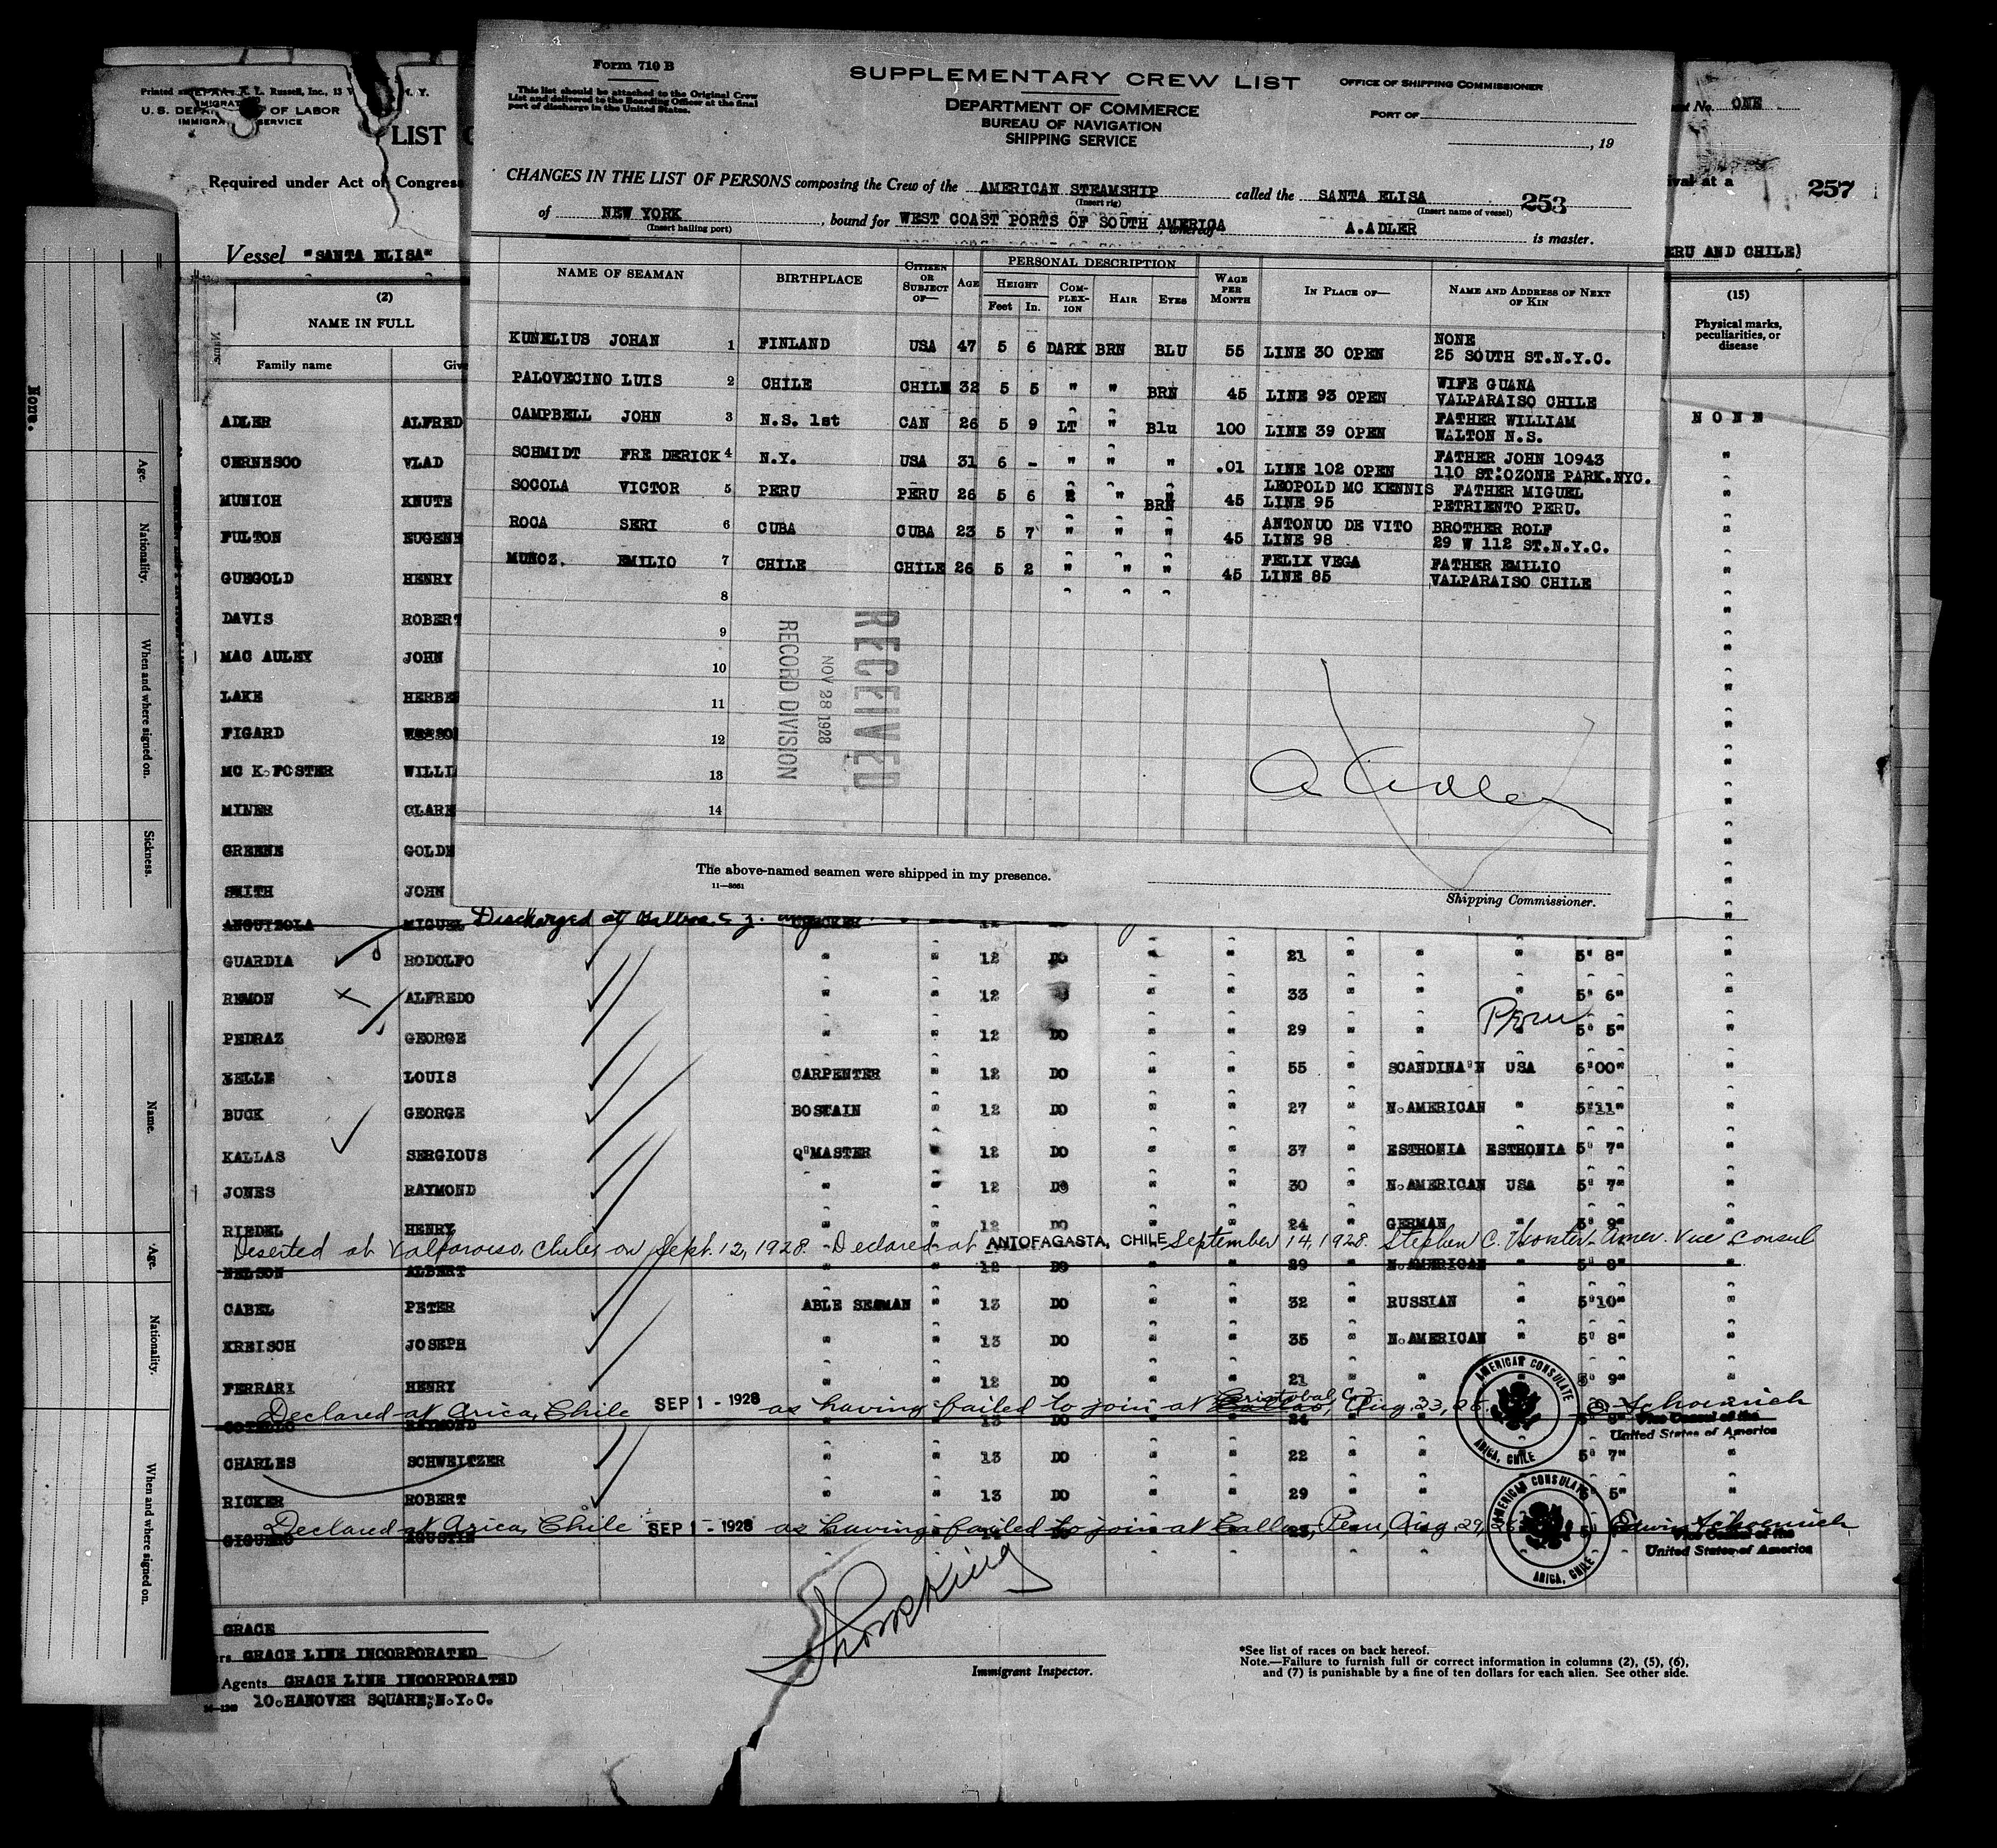 Form 710 B
This list should be attached to the Original Crew
List and delivered to the Boarding Officer at the final
port of discharge in the United States.
SUPPLEMENTARY CREW LIST
DEPARTMENT OF COMMERCE
BUREAU OF NAVIGATION
SHIPPING SERVICE
OFFICE OF SHIPPING COMMISSIONER
PORT OF
, 19
CHANGES IN THE LIST OF PERSONS composing the Crew of the AMERICAN STEAMSHIP called the SANTA ELISA 253
(Insert rig) (Insert name of vessel)
of NEW YORK, bound for WEST COAST PORTS OF SOUTH AMERICA whereof A.ADLER is master.
(Insert hailing port)
NAME OF SEAMAN BIRTHPLACE CITIZEN OR SUBJECT OF— AGE PERSONAL DESCRIPTION WAGE PER MONTH IN PLACE OF— NAME AND ADDRESS OF NEXT OF KIN
HEIGHT COM-PLEX-ION HAIR EYES
Feet In.
KUNELIUS JOHAN 1 FINLAND USA 47 5 6 DARK BRN BLU 55 LINE 30 OPEN NONE
25 SOUTH ST.N.Y.C.
PALOVECINO LUIS 2 CHILE CHILE 32 5 5 " " BRN 45 LINE 93 OPEN WIFE GUANA
VALPARAISO CHILE
CAMPBELL JOHN 3 N.S. 1st CAN 26 5 9 LT " Blu 100 LINE 39 OPEN FATHER WILLIAM
WALTON N.S.
SCHMIDT FRE DERICK 4 N.Y. USA 31 6 - " " " .01 LINE 102 OPEN FATHER JOHN 10943
110 ST.OZONE PARK.NYC.
SOCOLA VICTOR 5 PERU PERU 26 5 6 " BRN 45 LEOPOLD MC KENNIS FATHER MIGUEL
LINE 95 PETRIENTO PERU.
ROCA SERI 6 CUBA CUBA 23 5 7 " " " 45 ANTONUO DE VITO BROTHER ROLF
LINE 98 29 W 112 ST.N.Y.C.
MUNOZ. EMILIO 7 CHILE CHILE 26 5 2 " " " 45 FELIX VEGA FATHER EMILIO
LINE 85 VALPARAISO CHILE
8
9
10
11
12
13
14
RECEIVED
NOV 28 1928
RECORD DIVISION
A Adler
The above-named seamen were shipped in my presence.
11—8661
Shipping Commissioner.
U.S. DEPA OF LABOR
IMMIGRA SERVICE
LIST
Required under Act of Congress
Vessel "SANTA ELISA"
No. ONE
ival at a 257
ERU AND CHILE)
(2)
NAME IN FULL
Family name Giv
(15)
Physical marks, peculiarities, or disease
ADLER ALFRED NONE
CERNESCO VLAD "
MUNICH KNUTE "
FULTON EUGENE "
GUEGOLD HENRY "
DAVIS ROBERT "
MAC AULEY JOHN "
LAKE HERBE "
FIGARD WATSO "
MC K.FOSTER WILLI "
MINER CLARE "
GREENE GOLDE "
SMITH JOHN "
ANGUIZOLA MIGUEL Discharged at Balboa C.Z.
GUARDIA RODOLFO " " 12 DO " " 21 " " " 5' 8" "
REMON ALFREDO " " 12 " " 33 " " " 5' 6" "
Peru
PEDRAZ GEORGE " " 12 DO " " 29 " " 5' 5" "
ZELLE LOUIS CARPENTER " 12 DO " " 55 " SCANDINA'N USA 6'00" "
BUCK GEORGE BOSTAIN " 12 DO " " 27 " N.AMERICAN " 5'11" "
KALLAS SERGIOUS Q"MASTER " 12 DO " " 37 " ESTHONIA ESTHONIA 5' 7" "
JONES RAYMOND " " 12 DO " " 30 " N.AMERICAN USA 5' 7" "
RIEDEL HENRY " " 12 DO " " 24 " GERMAN " 5' 9" "
Deserted at Valparaiso, Chile, on Sept. 12, 1928. Declared at ANTOFAGASTA, CHILE September 14, 1928. Stephen C. Worster Amer. Vice Consul
NELSON ALBERT " " 12 DO " " 29 " N.AMERICAN " 5' 8" "
CABEL PETER ABLE SEAMAN " 13 DO " " 32 " RUSSIAN " 5'10" "
KREISCH JOSEPH " " 13 DO " " 35 " N.AMERICAN " 5' 8" "
FERRARI HENRY " " 12 DO " " 21 " " 5' 9" "
Declared at Arica, Chile SEP 1 - 1928 as having failed to join at Callao, Cristobal C.Z. Aug. 23, 28. E Schoenrich
Vice Consul of the
United States of America
COTELLO RAYMOND " " 13 DO " " 24
AMERICAN CONSULATE
ARICA, CHILE
CHARLES SCHWEITZER " " 13 DO " " 22 " " 5' 7" "
RICKER ROBERT " " 13 DO " " 29 " " 5' 5" "
Declared at Arica, Chile SEP 1 - 1928 as having failed to join at Callao, Peru, Aug. 29, 28 Edwin Schoenrich
Vice Consul of the
United States of America
AGUSTIN
AMERICAN CONSULATE
ARICA, CHILE
GRACE
GRACE LINE INCORPORATED
Agents GRACE LINE INCORPORATED
10.HANOVER SQUARE,N.Y.C.
Immigrant Inspector.
*See list of races on back hereof.
Note.—Failure to furnish full or correct information in columns (2), (5), (6),
and (7) is punishable by a fine of ten dollars for each alien. See other side.
None.
Age.
Nationality.
When and where signed on.
Sickness.
Name.
Age.
Nationality.
When and where signed on.